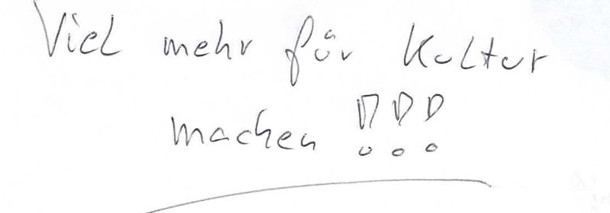 Viel mehr für Kultur
machen !!!